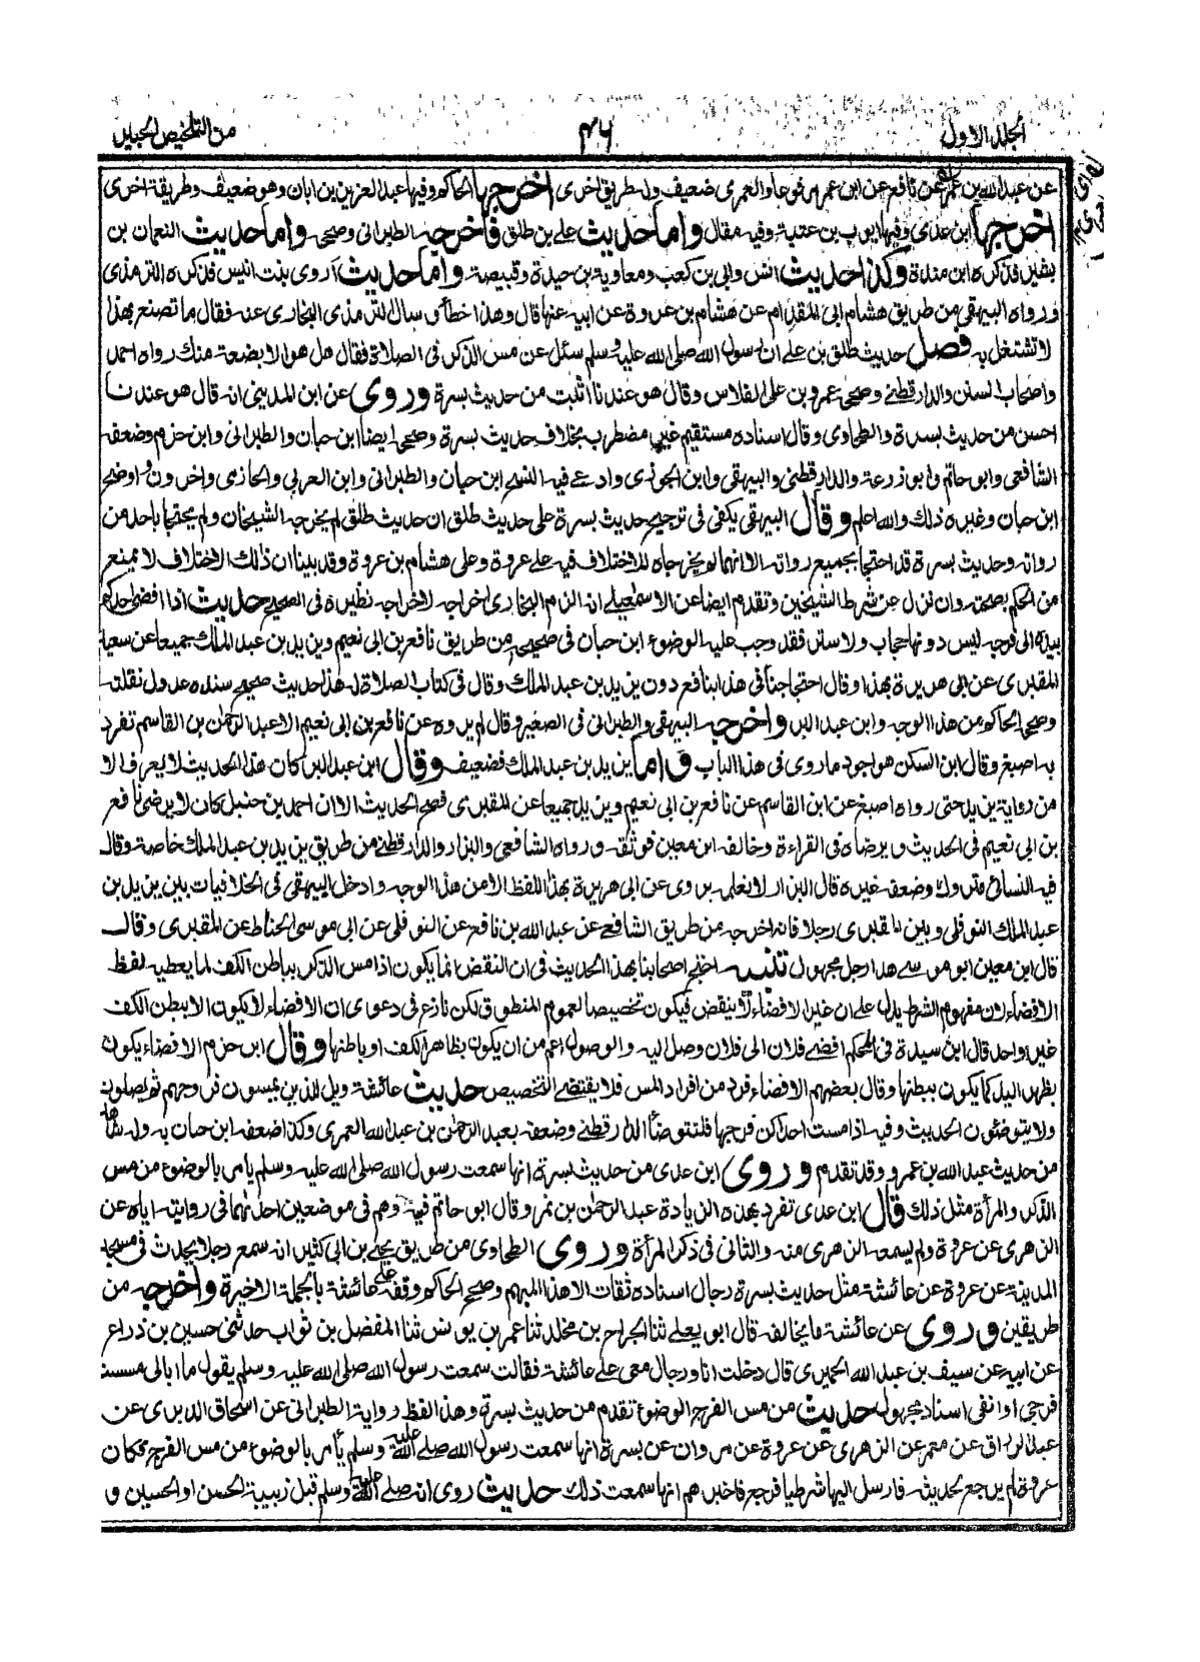 المجلد الاول
٤٦
من التلخيص الحبير
عن عبد الله بن عمر عن نافع عن ابن عمر مرفوعا والعمرى ضعيف وله طريق اخرى اخرجها الحاكم وفيها عبد العزيز بن ابان وهو ضعيف وطريقة اخرى
اخرجها ابن عدى وفيها ايوب بن عتبة وفيه مقال واما حديث على بن طلق فاخرجه الطبرانى وصححه واما حديث النعمان بن
بشير فذكره ابن مندة وكذا حديث انس وابى بن كعب ومعاوية بن حيدة وقبيصة واما حديث اروى بنت انيس فذكره الترمذى
ورواه البيهقى من طريق هشام ابى المقدام عن هشام بن عروة عن ابيه عنها قال وهذا خطأ وسال الترمذى البخارى عنه فقال ما تصنع بهذا
لا تشتغل به فصل حديث طلق بن على ان رسول الله صلى الله عليه وسلم سئل عن مس الذكر فى الصلاة فقال هل هو الا بضعة منك رواه احمد
واصحاب السنن والدارقطنى وصححه عمرو بن على الفلاس وقال هو عندنا اثبت من حديث بسرة وروى عن ابن المدينى انه قال هو عندنا
احسن من حديث بسرة والطحاوى وقال اسناده مستقيم غير مضطرب بخلاف حديث بسرة وصححه ايضا ابن حبان والطبرانى وابن حزم وضعفه
الشافعى وابو حاتم وابو زرعة والدارقطنى والبيهقى وابن الجوزى وادعى فيه النسخ ابن حبان والطبرانى وابن العربى والحازمى واخرون واوضح
ابن حبان وغيره ذلك والله اعلم وقال البيهقى يكفى فى ترجيح حديث بسرة على حديث طلق ان حديث طلق لم يخرجه الشيخان ولم يحتجا باحد من
رواته وحديث بسرة قد احتجا بجميع رواته الا انهما لم يخرجاه للاختلاف فيه على عروة وعلى هشام بن عروة وقد بينا ان ذلك الاختلاف لا يمنع
من الحكم بصحته وان نزل عن شرط الشيخين وتقدم ايضا عن الاسمعيلى انه الزم البخارى اخراجه لاخراجه نظيره فى الصحيح حديث اذا افضى احدكم
بيده الى فرجه ليس دونها حجاب ولا ستر فقد وجب عليه الوضوء ابن حبان فى صحيحه من طريق نافع بن ابى نعيم ويزيد بن عبد الملك جميعا عن سعيد
المقبرى عن ابى هريرة بهذا وقال احتجاجنا فى هذا بنافع دون يزيد بن عبد الملك وقال فى كتاب الصلاة له هذا حديث صحيح سنده عدول نقلته
وصححه الحاكم من هذا الوجه وابن عبد البر واخرجه البيهقى والطبرانى فى الصغير وقال لم يروه عن نافع بن ابى نعيم الا عبد الرحمٰن بن القاسم تفرد
به اصبغ وقال ابن السكن هو اجود ما روى فى هذا الباب واما يزيد بن عبد الملك فضعيف وقال ابن عبد البر كان هذا الحديث لا يعرف الا
من رواية يزيد حتى رواه اصبغ عن ابن القاسم عن نافع بن ابى نعيم ويزيد جميعا عن المقبرى فصح الحديث الا ان احمد بن حنبل كان لا يرضى نافع
بن ابى نعيم فى الحديث ويرضاه فى القراءة وخالفه ابن معين فوثقه ورواه الشافعى والبزار والدارقطنى من طريق يزيد بن عبد الملك خاصة وقال
فيه النسائى متروك وضعفه غيره قال البزار لا نعلمه يروى عن ابى هريرة بهذا اللفظ الا من هذا الوجه وادخل البيهقى فى الخلافيات بين يزيد بن
عبد الملك النوفلى وبين المقبرى رجلا فانه اخرجه من طريق الشافعى عن عبد الله بن نافع عن النوفلى عن ابى موسى الحناط عن المقبرى وقال
قال ابن معين ابو موسى هذا رجل مجهول تنبيه احتج اصحابنا بهذا الحديث فى ان النقض انما يكون اذا مس الذكر بباطن الكف لما يعطيه لفظ
الافضاء لان مفهوم الشرط يدل على ان غير الافضاء لا ينقض فيكون تخصيصا لعموم المنطوق لكن نازع فى دعوى ان الافضاء لا يكون الا ببطن الكف
غير واحد قال ابن سيدة فى المحكم افضى فلان الى فلان وصل اليه والوصول اعم من ان يكون بظاهر الكف او باطنها وقال ابن حزم الافضاء يكون
بظهر اليد كما يكون ببطنها وقال بعضهم الافضاء فرد من افراد المس فلا يقتضى التخصيص حديث عائشة ويل للذين يمسون فروجهم ثم يصلون
ولا يتوضئون الحديث وفيه اذا مست احداكن فرجها فلتتوضأ الدارقطنى وضعفه بعبد الرحمٰن بن عبد الله العمرى وكذا ضعفه ابن حبان به وله شاهد
من حديث عبد الله بن عمرو وقد تقدم وروى ابن عدى من حديث بسرة انها سمعت رسول الله صلى الله عليه وسلم يأمر بالوضوء من مس
الذكر والمرأة مثل ذلك قال ابن عدى تفرد بهذه الزيادة عبد الرحمٰن بن نمر وقال ابو حاتم فيه وهم فى موضعين احدهما فى روايته اياه عن
الزهرى عن عروة ولم يسمعه الزهرى منه والثانى فى ذكر المرأة وروى الطحاوى من طريق يحيى بن ابى كثير انه سمع رجلا يحدث فى مسجد
المدينة عن عروة عن عائشة مثل حديث بسرة رجال اسناده ثقات الا هذا المبهم وصحح الحاكم وقفه على عائشة بالجملة الاخيرة واخرجه من
طريقين وروى عن عائشة ما يخالفه قال ابو يعلى ثنا الجراح بن مخلد ثنا عمر بن يونس ثنا المفضل بن ثواب حدثنى حسين بن ذراع
عن ابيه عن سيف بن عبد الله الحميرى قال دخلت انا ورجال معى على عائشة فقالت سمعت رسول الله صلى الله عليه وسلم يقول ما ابالى مسست
فرجى او انفى اسناده مجهول حديث من مس الفرج الوضوء تقدم من حديث بسرة وهذا لفظ رواية الطبرانى عن اسحاق الدبرى عن
عبد الرزاق عن معمر عن الزهرى عن عروة عن مروان عن بسرة انها سمعت رسول الله صلى الله عليه وسلم يأمر بالوضوء من مس الفرج فكان
عروة لم يرجع لحديثه فارسل اليها شرطيا فرجع فاخبرهم انها سمعت ذلك حديث روى انه صلى الله عليه وسلم قبل زبيبة الحسن او الحسين و